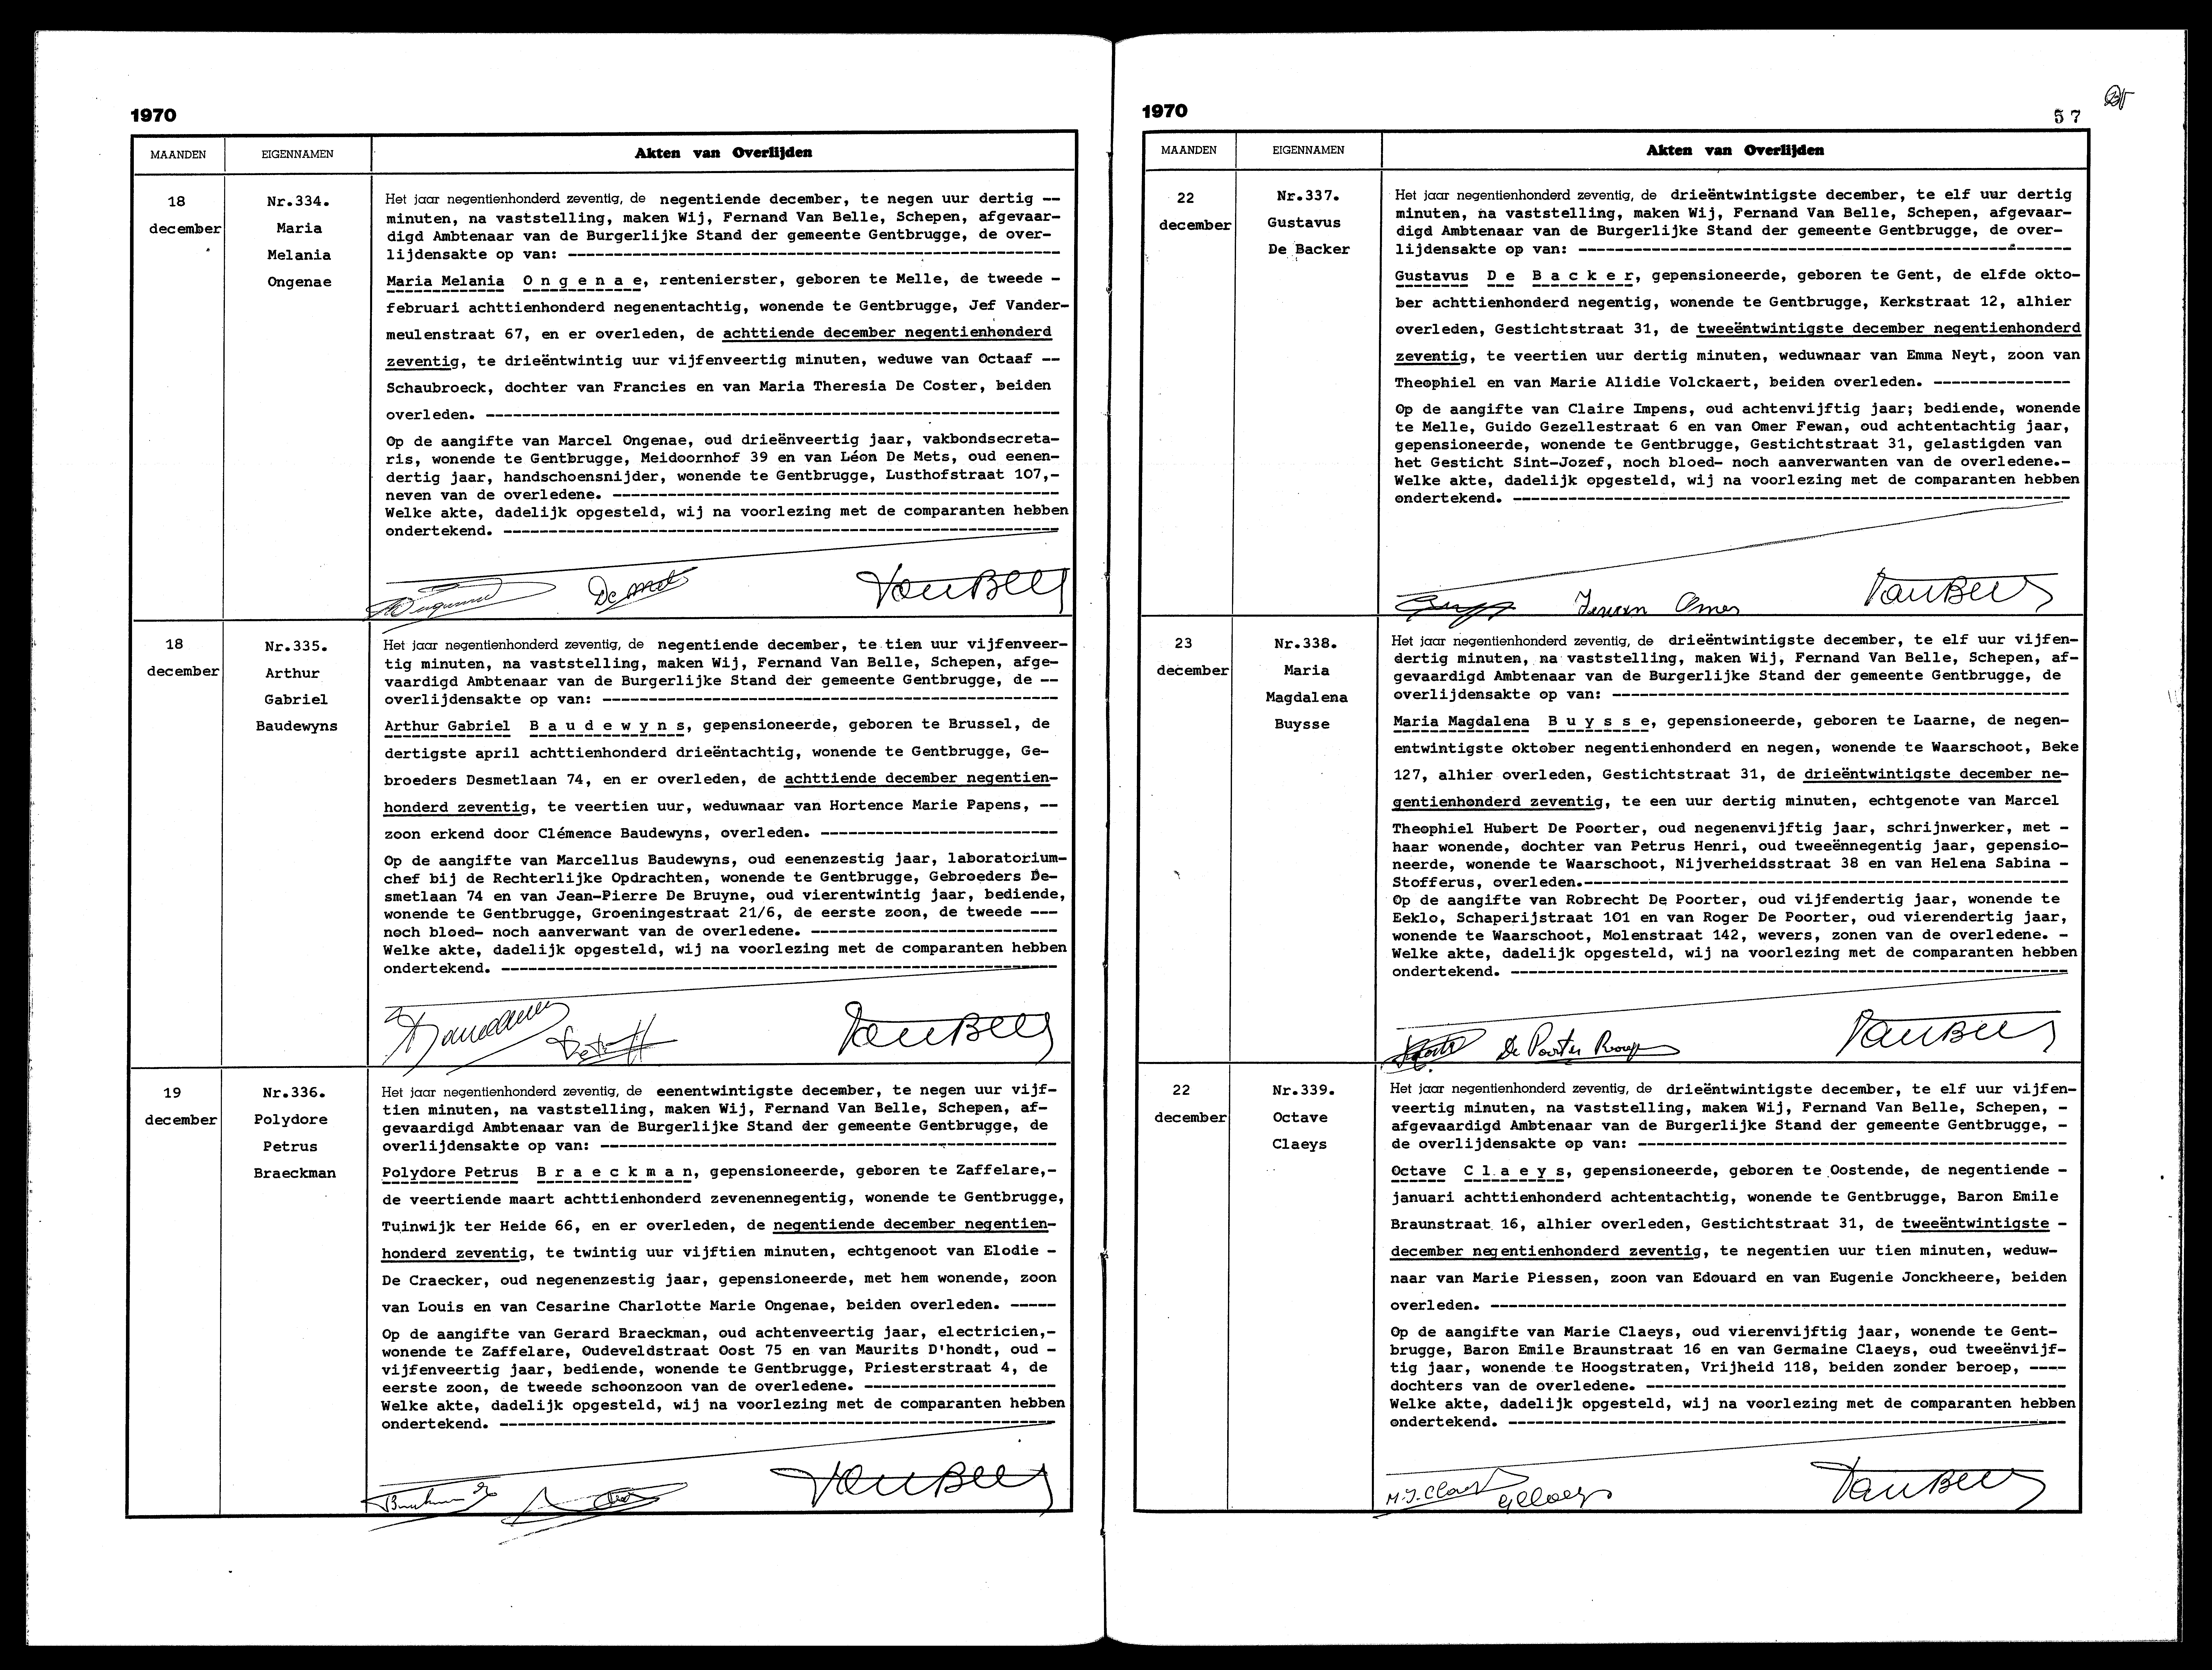 1970
MAANDEN
EIGENNAMEN
Akten van Overlijden
18
december
Nr.334.
Maria
Melania
Ongenae
Het jaar negentienhonderd zeventig, de negentiende december, te negen uur dertig --
minuten, na vaststelling, maken Wij, Fernand Van Belle, Schepen, afgevaar-
digd Ambtenaar van de Burgerlijke Stand der gemeente Gentbrugge, de over-
lijdensakte op van: ------------------------------------------------------
Maria Melania O n g e n a e, rentenierster, geboren te Melle, de tweede -
februari achttienhonderd negenentachtig, wonende te Gentbrugge, Jef Vander-
meulenstraat 67, en er overleden, de achttiende december negentienhonderd
zeventig, te drieëntwintig uur vijfenveertig minuten, weduwe van Octaaf --
Schaubroeck, dochter van Francies en van Maria Theresia De Coster, beiden
overleden. ---------------------------------------------------------------
Op de aangifte van Marcel Ongenae, oud drieënveertig jaar, vakbondsecreta-
ris, wonende te Gentbrugge, Meidoornhof 39 en van Léon De Mets, oud eenen-
dertig jaar, handschoensnijder, wonende te Gentbrugge, Lusthofstraat 107,-
neven van de overledene. -------------------------------------------------
Welke akte, dadelijk opgesteld, wij na voorlezing met de comparanten hebben
ondertekend. -------------------------------------------------------------
De Mets VanBelle
18
december
Nr.335.
Arthur
Gabriel
Baudewyns
Het jaar negentienhonderd zeventig, de negentiende december, te tien uur vijfenveer-
tig minuten, na vaststelling, maken Wij, Fernand Van Belle, Schepen, afge-
vaardigd Ambtenaar van de Burgerlijke Stand der gemeente Gentbrugge, de --
overlijdensakte op van: --------------------------------------------------
Arthur Gabriel B a u d e w y n s, gepensioneerde, geboren te Brussel, de
dertigste april achttienhonderd drieëntachtig, wonende te Gentbrugge, Ge-
broeders Desmetlaan 74, en er overleden, de achttiende december negentien-
honderd zeventig, te veertien uur, weduwnaar van Hortence Marie Papens, --
zoon erkend door Clémence Baudewyns, overleden. --------------------------
Op de aangifte van Marcellus Baudewyns, oud eenenzestig jaar, laboratorium-
chef bij de Rechterlijke Opdrachten, wonende te Gentbrugge, Gebroeders De-
smetlaan 74 en van Jean-Pierre De Bruyne, oud vierentwintig jaar, bediende,
wonende te Gentbrugge, Groeningestraat 21/6, de eerste zoon, de tweede ---
noch bloed- noch aanverwant van de overledene. ---------------------------
Welke akte, dadelijk opgesteld, wij na voorlezing met de comparanten hebben
ondertekend. -------------------------------------------------------------
VanBelle
19
december
Nr.336.
Polydore
Petrus
Braeckman
Het jaar negentienhonderd zeventig, de eenentwintigste december, te negen uur vijf-
tien minuten, na vaststelling, maken Wij, Fernand Van Belle, Schepen, af-
gevaardigd Ambtenaar van de Burgerlijke Stand der gemeente Gentbrugge, de
overlijdensakte op van: --------------------------------------------------
Polydore Petrus B r a e c k m a n, gepensioneerde, geboren te Zaffelare,-
de veertiende maart achttienhonderd zevenennegentig, wonende te Gentbrugge,
Tuinwijk ter Heide 66, en er overleden, de negentiende december negentien-
honderd zeventig, te twintig uur vijftien minuten, echtgenoot van Elodie -
De Craecker, oud negenenzestig jaar, gepensioneerde, met hem wonende, zoon
van Louis en van Cesarine Charlotte Marie Ongenae, beiden overleden. -----
Op de aangifte van Gerard Braeckman, oud achtenveertig jaar, electricien,-
wonende te Zaffelare, Oudeveldstraat Oost 75 en van Maurits D'hondt, oud -
vijfenveertig jaar, bediende, wonende te Gentbrugge, Priesterstraat 4, de
eerste zoon, de tweede schoonzoon van de overledene. ---------------------
Welke akte, dadelijk opgesteld, wij na voorlezing met de comparanten hebben
ondertekend. -------------------------------------------------------------
VanBelle
1970
57
MAANDEN
EIGENNAMEN
Akten van Overlijden
22
december
Nr.337.
Gustavus
De Backer
Het jaar negentienhonderd zeventig, de drieëntwintigste december, te elf uur dertig
minuten, na vaststelling, maken Wij, Fernand Van Belle, Schepen, afgevaar-
digd Ambtenaar van de Burgerlijke Stand der gemeente Gentbrugge, de over-
lijdensakte op van: ------------------------------------------------------
Gustavus D e B a c k e r, gepensioneerde, geboren te Gent, de elfde okto-
ber achttienhonderd negentig, wonende te Gentbrugge, Kerkstraat 12, alhier
overleden, Gestichtstraat 31, de tweeëntwintigste december negentienhonderd
zeventig, te veertien uur dertig minuten, weduwnaar van Emma Neyt, zoon van
Theophiel en van Marie Alidie Volckaert, beiden overleden. ---------------
Op de aangifte van Claire Impens, oud achtenvijftig jaar; bediende, wonende
te Melle, Guido Gezellestraat 6 en van Omer Fewan, oud achtentachtig jaar,
gepensioneerde, wonende te Gentbrugge, Gestichtstraat 31, gelastigden van
het Gesticht Sint-Jozef, noch bloed- noch aanverwanten van de overledene.-
Welke akte, dadelijk opgesteld, wij na voorlezing met de comparanten hebben
ondertekend. -------------------------------------------------------------
Omer VanBelle
23
december
Nr.338.
Maria
Magdalena
Buysse
Het jaar negentienhonderd zeventig, de drieëntwintigste december, te elf uur vijfen-
dertig minuten, na vaststelling, maken Wij, Fernand Van Belle, Schepen, af-
gevaardigd Ambtenaar van de Burgerlijke Stand der gemeente Gentbrugge, de
overlijdensakte op van: --------------------------------------------------
Maria Magdalena B u y s s e, gepensioneerde, geboren te Laarne, de negen-
entwintigste oktober negentienhonderd en negen, wonende te Waarschoot, Beke
127, alhier overleden, Gestichtstraat 31, de drieëntwintigste december ne-
gentienhonderd zeventig, te een uur dertig minuten, echtgenote van Marcel
Theophiel Hubert De Poorter, oud negenenvijftig jaar, schrijnwerker, met -
haar wonende, dochter van Petrus Henri, oud tweeënnegentig jaar, gepensio-
neerde, wonende te Waarschoot, Nijverheidsstraat 38 en van Helena Sabina -
Stofferus, overleden.-----------------------------------------------------
Op de aangifte van Robrecht De Poorter, oud vijfendertig jaar, wonende te
Eeklo, Schaperijstraat 101 en van Roger De Poorter, oud vierendertig jaar,
wonende te Waarschoot, Molenstraat 142, wevers, zonen van de overledene. -
Welke akte, dadelijk opgesteld, wij na voorlezing met de comparanten hebben
ondertekend. -------------------------------------------------------------
De Poorter Roger VanBelle
22
december
Nr.339.
Octave
Claeys
Het jaar negentienhonderd zeventig, de drieëntwintigste december, te elf uur vijfen-
veertig minuten, na vaststelling, maken Wij, Fernand Van Belle, Schepen, -
afgevaardigd Ambtenaar van de Burgerlijke Stand der gemeente Gentbrugge, -
de overlijdensakte op van: -----------------------------------------------
Octave C l a e y s, gepensioneerde, geboren te Oostende, de negentiende -
januari achttienhonderd achtentachtig, wonende te Gentbrugge, Baron Emile
Braunstraat 16, alhier overleden, Gestichtstraat 31, de tweeëntwintigste -
december negentienhonderd zeventig, te negentien uur tien minuten, weduw-
naar van Marie Piessen, zoon van Edouard en van Eugenie Jonckheere, beiden
overleden. ---------------------------------------------------------------
Op de aangifte van Marie Claeys, oud vierenvijftig jaar, wonende te Gent-
brugge, Baron Emile Braunstraat 16 en van Germaine Claeys, oud tweeënvijf-
tig jaar, wonende te Hoogstraten, Vrijheid 118, beiden zonder beroep, ----
dochters van de overledene. ----------------------------------------------
Welke akte, dadelijk opgesteld, wij na voorlezing met de comparanten hebben
ondertekend. -------------------------------------------------------------
M.J. Claeys GClaeys VanBelle